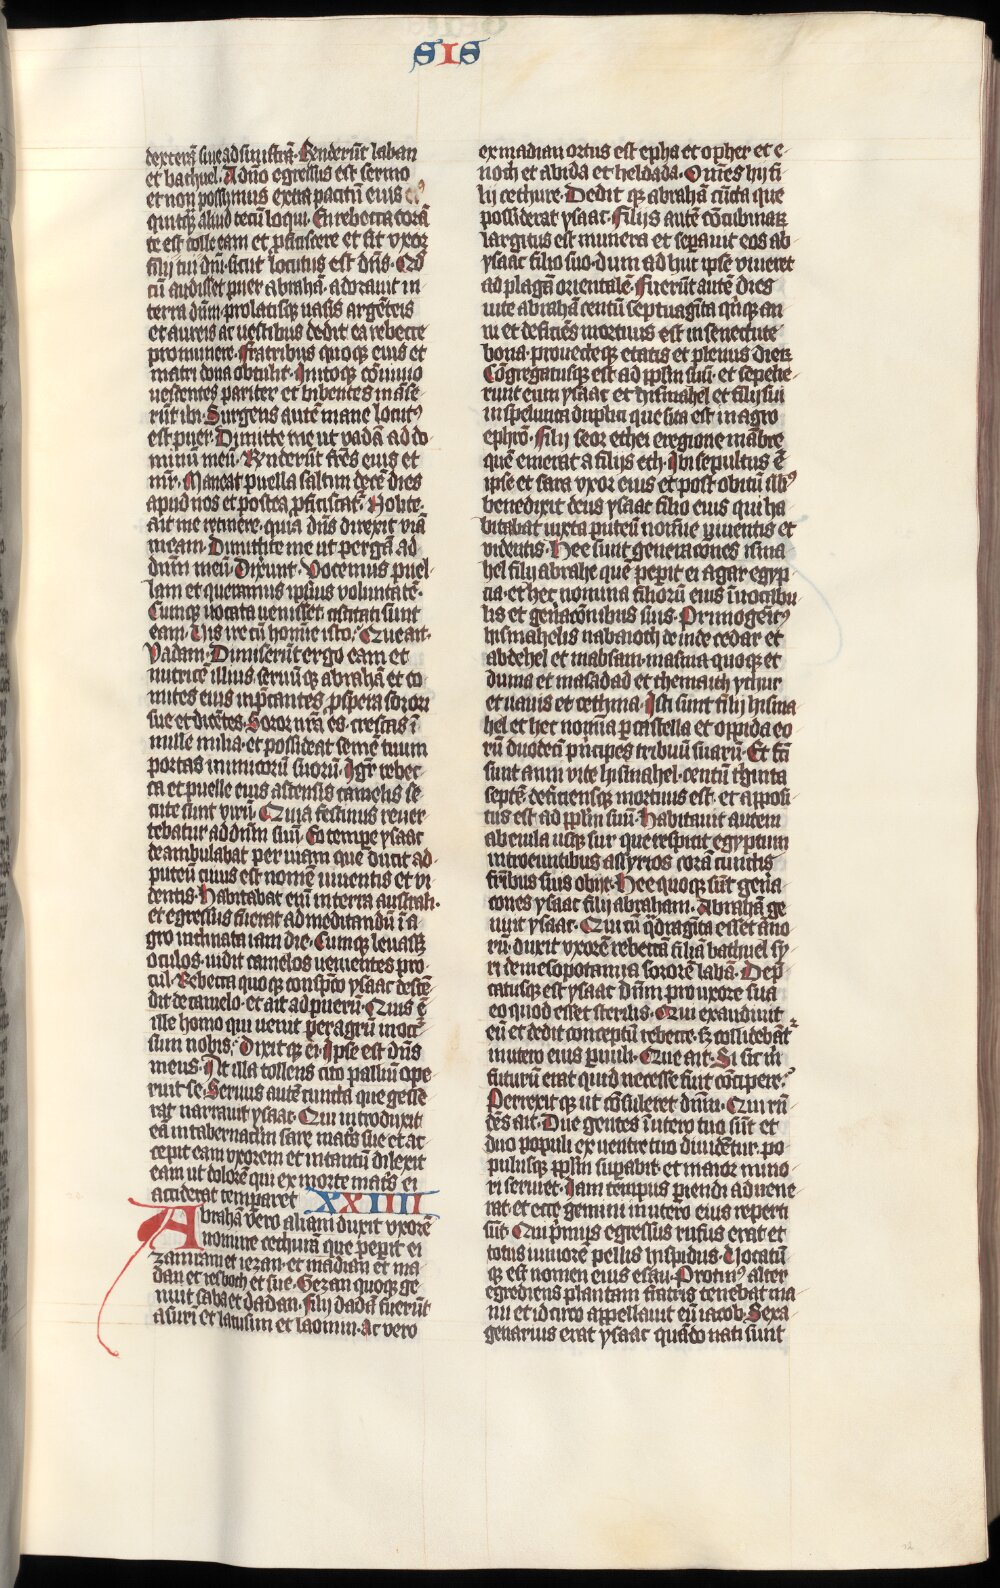 SIS
dexterā siue ad sinistrā. Renderūt laban
et bachuel. A dn̄o egressus est sermo
et non possumus extra pacitū eius
quitq̄ aliud tecū loqui. En rebecca corā
te est tolle eam et p̄ficiscere et sit vxor
filij tui dn̄i sicut locutus est dn̄s. Qd̄
cū audisset puer abrahā. adorauit in
terra dūm. prolatisq̄ vasis argēteis
et aureis ac vestibus dedit ea rebecce
pro munere. Fratribus quoq̄ eius et
matri dona obtulit. Initoq̄ cōuiuio
vescentes pariter et bibentes māse-
rūt ibi. Surgens autē mane locutꝰ
est puer. Dimitte me ut vadā ad do
minū meū. Renderūt frēs eius et
mr̄. Maneat puella saltim decē dies
apud nos et postea p̄ficiscat̄. Nolite.
ait me retinere. quia dn̄s direxit viā
meam. Dimittite me ut pergā ad
dn̄m meū. Dixerunt. Vocemus puel-
lam et queramus ip̄ius voluntatē.
Cumq̄ uocata uenisset. sciscitati sunt
eam. Vis ire cū homīe isto. Que ait.
Vadam. Dimiserūt ergo eam et
nutricē illius. seruū q̄ abrahā et co
mites eius inp̄cantes p̄spera sorori
sue et dicētes. Soror nr̄a es. crescas ī
mille milia. et possideat semē tuum
portas inimicorū suorū. Igr̄ rebec-
ca et puelle eius ascensis camelis se
cute sunt virū. Qui festinus reuer
tebatur ad dn̄m suū. Eo tempe ysaac
deambulabat per uiam que ducit ad.
puteū cuius est nomē viuentis et vi
dentis. Habitabat eni in terra australi.
et egressus fuerat ad meditandū ī a
gro inclinata iam die. Cumq̄ leuass̄
oculos. vidit camelos venientes pro
cul. Rebecca quoq̄ conspc̄o ysaac descē
dit de camelo. et ait ad puerū. Quis ē
ille homo qui venit per agrū in occꝰ
sum nobis. Dixit q̄ ei. Ipse est dn̄s
meus. At illa tollens cito palliū ope
ruit se. Seruus autē cuncta que gesse
rat narrauit ysaac. Qui introduxit
eā in tabernaclm̄ sare mat̄s sue et ac
cepit eam vxorem et intantū dilexit
eam ut dolorē qui ex morte mat̄s ei
acciderat temparet XXIIII
Abrahā vero aliam duxit vxorē
nomine cethurā que pep̄it ei
zamram et iezan. et madian et ma
dan et iesboch et sue. Gezan quoq̄ ge
nuit saba et dadan. Filij dadā fuerūt
asuri et latusim et laomin. Ac vero
ex madian ortus est epha et opher et e-
noch et abida et heldada. Om̄es hij fi
lij cethure. Dedit q̄ abrahā cūcta que
possiderat ysaac. Filijs autē cōcubinaꝝ
largitus est munera et sepauit eos ab
ysaac filio suo. dum ad huc ipse viueret
ad plagā orientalē. Fuerūt autē dies
uite abrahā centū septuagīta qīq̄ an
ni et deficiēs mortuus est in senectute
bona. prouecteq̄ etatis et plenus dieꝝ
Cōgregatusq̄ est ad ip̄lm suū. et sepelie-
runt eum ysaac et hismahel et filij sui
in spelunca duplici que sita est in agro
ephrō. Filij seor ethei eregione mābre
quē emerat a filijs eth. Ibi sepultus ē
ipse et sara vxor eius et post obitū illiꝰ
benedixit deus ysaac filio eius qui ha
bitabat iuxta puteū nomīe viuentis et
videntis. Hee sunt generacones isma
hel filij abrahe que pep̄it ei agar egyp
cia. et hec nomina filiorū eius ī vocabu
lis et gen̄acōnibus suis. Primogenitꝰ
hismahelis nabaioth de inde cedar et
abdehel et mabsam. masma quoq̄ et
duma et masadad et themaith ythur
et nauis et cethyma. Isti sunt filij hisma
hel et hec nomīa p castella et oppida eo
rū duodeci p̄ncipes tribuū suarū. Et fc̄i
sunt anni vite hismahel. centū t̄ginta
septē. deficiensq̄ mortuus est. et apposi
tus est ad pp̄lm suū. Habitauit autem
ab euila usq̄ sur que respicit egyptum
introeuntibus assyrios. corā cunctis
fr̄ibus suis obijt. Hee quoq̄ sūt gen̄a
cones ysaac filij abraham. Abrahā ge
nuit ysaac. Qui cū q̄dragīta esset āno
rū. duxit vxorē rebeccā filiā bathuel sy
ri de mesopotamia sororē labā. Dep̄
catusq̄ est ysaac dn̄m pro vxore sua
eo quod esset sterilis. Qui exaudiuit
eū et dedit conceptū rebecce. sꝫ collidebāt̄
in utero eius p̄uuli. Que ait. Si sic m̄
futurū erat quid necesse fuit cōcipere.
Perrexit q̄ ut cōsuleret dn̄m. Qui rn̄
dēs ait. Due gentes ī utero tuo sūt et
duo populi ex uentre tuo diuidētur. po
pulusq̄ pp̄lm supabit. et maior mino
ri seruiet. Iam tempus p̄iendi aduene
rat. et ecce gemini in utero eius reperti
sūt. Qui p̄mus egressus rufus erat et
totus in more pellis hyspidus. Vocatū
q̄ est nomen eius esau. Protinꝰ alter
egrediens plantam fratris tenebat ma
nu et idcirco appellauit eū iacob. Sexa
genarius erat ysaac quādo nati sunt